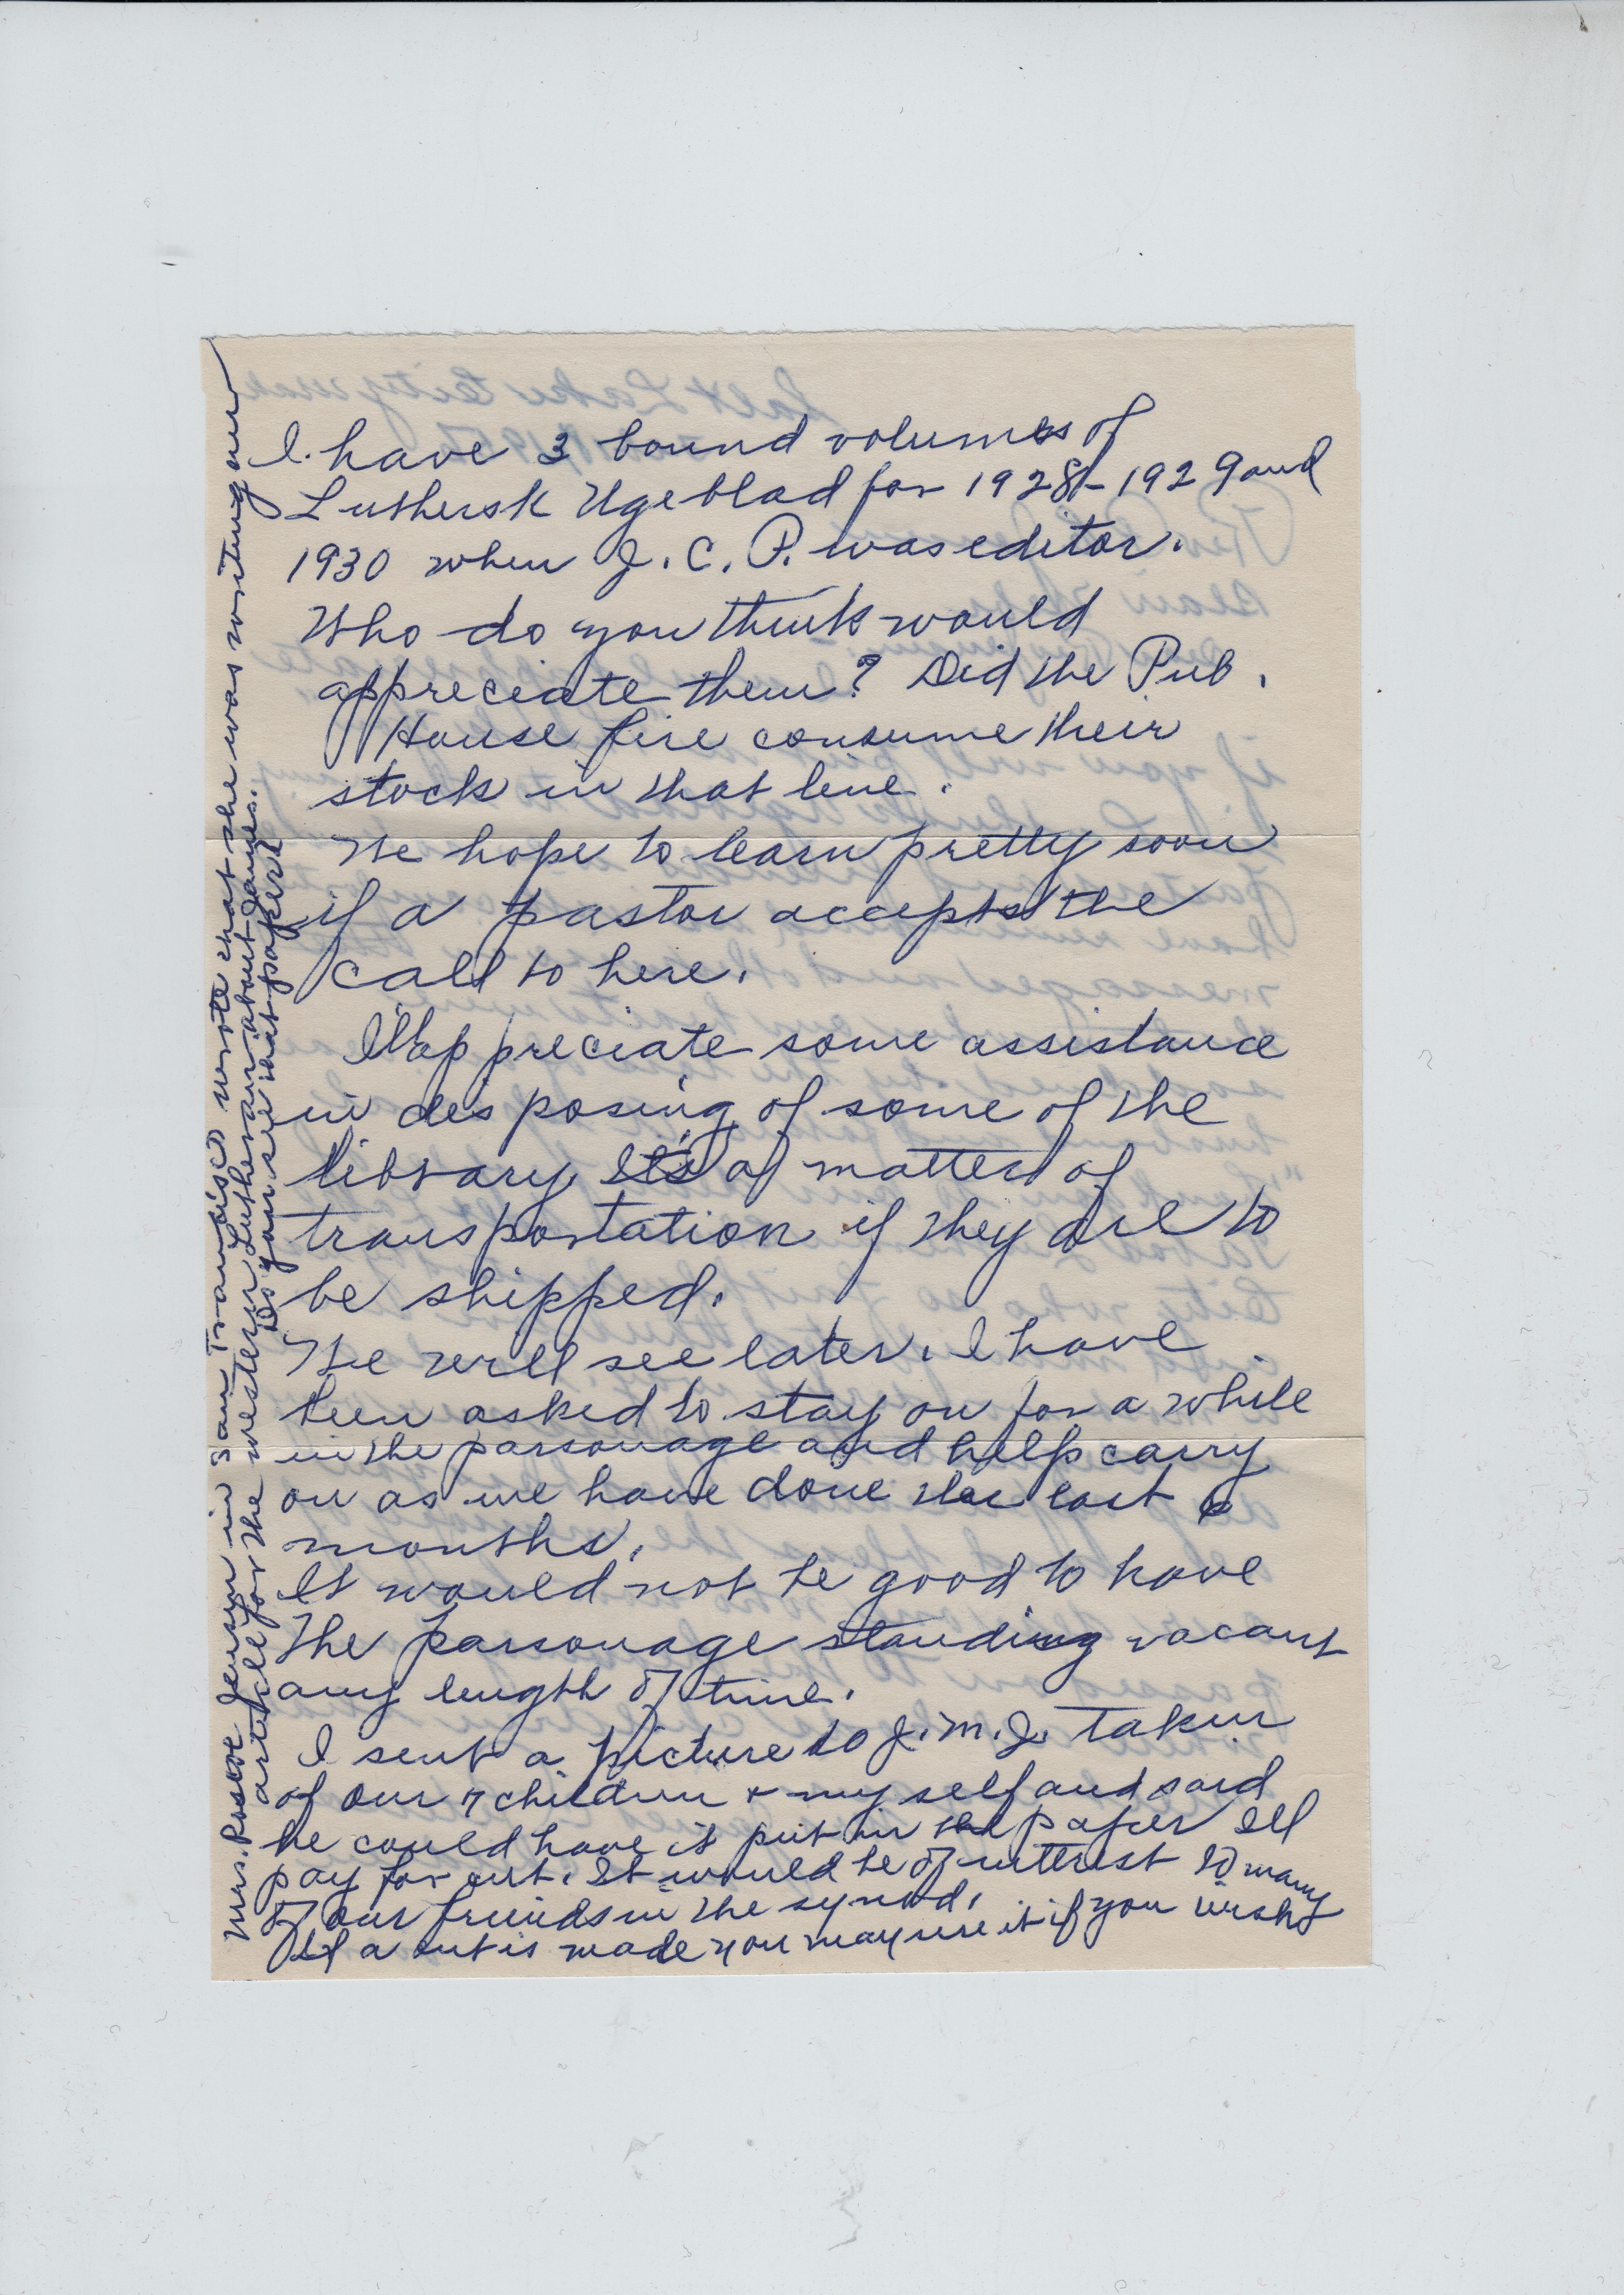 I have 3 bound volumes of
Luthersk Ugeblad for 1928-1929 and
1930 when J. C. P. was editor.
Who do you think would
appreciate them? Did the Pub.
House fire consume their
stock in that line.
We hope to learn pretty soon
if a pastor accepts the
call to here.
I'll appreciate some assistance
in desposing of some of the
library. It's a matter of
transportation if they are to
be shipped.
We will see later. I have
been asked to stay on for a while
in the parsonage and help carry
on as we have done the last 6
months.
It would not be good to have
the parsonage standing vacant
any length of time.
I sent a picture to J. M. J. taken
of our 7 children & myself and said
he could have it put in the paper I'll
pay for cut. It would be of interest to many
of our friends in the synod.
If a cut is made you may use it if you wish
Mrs. Jensen in San Francisco wrote that she was writing an
article for the western Lutheran about James.
Do you see that paper?